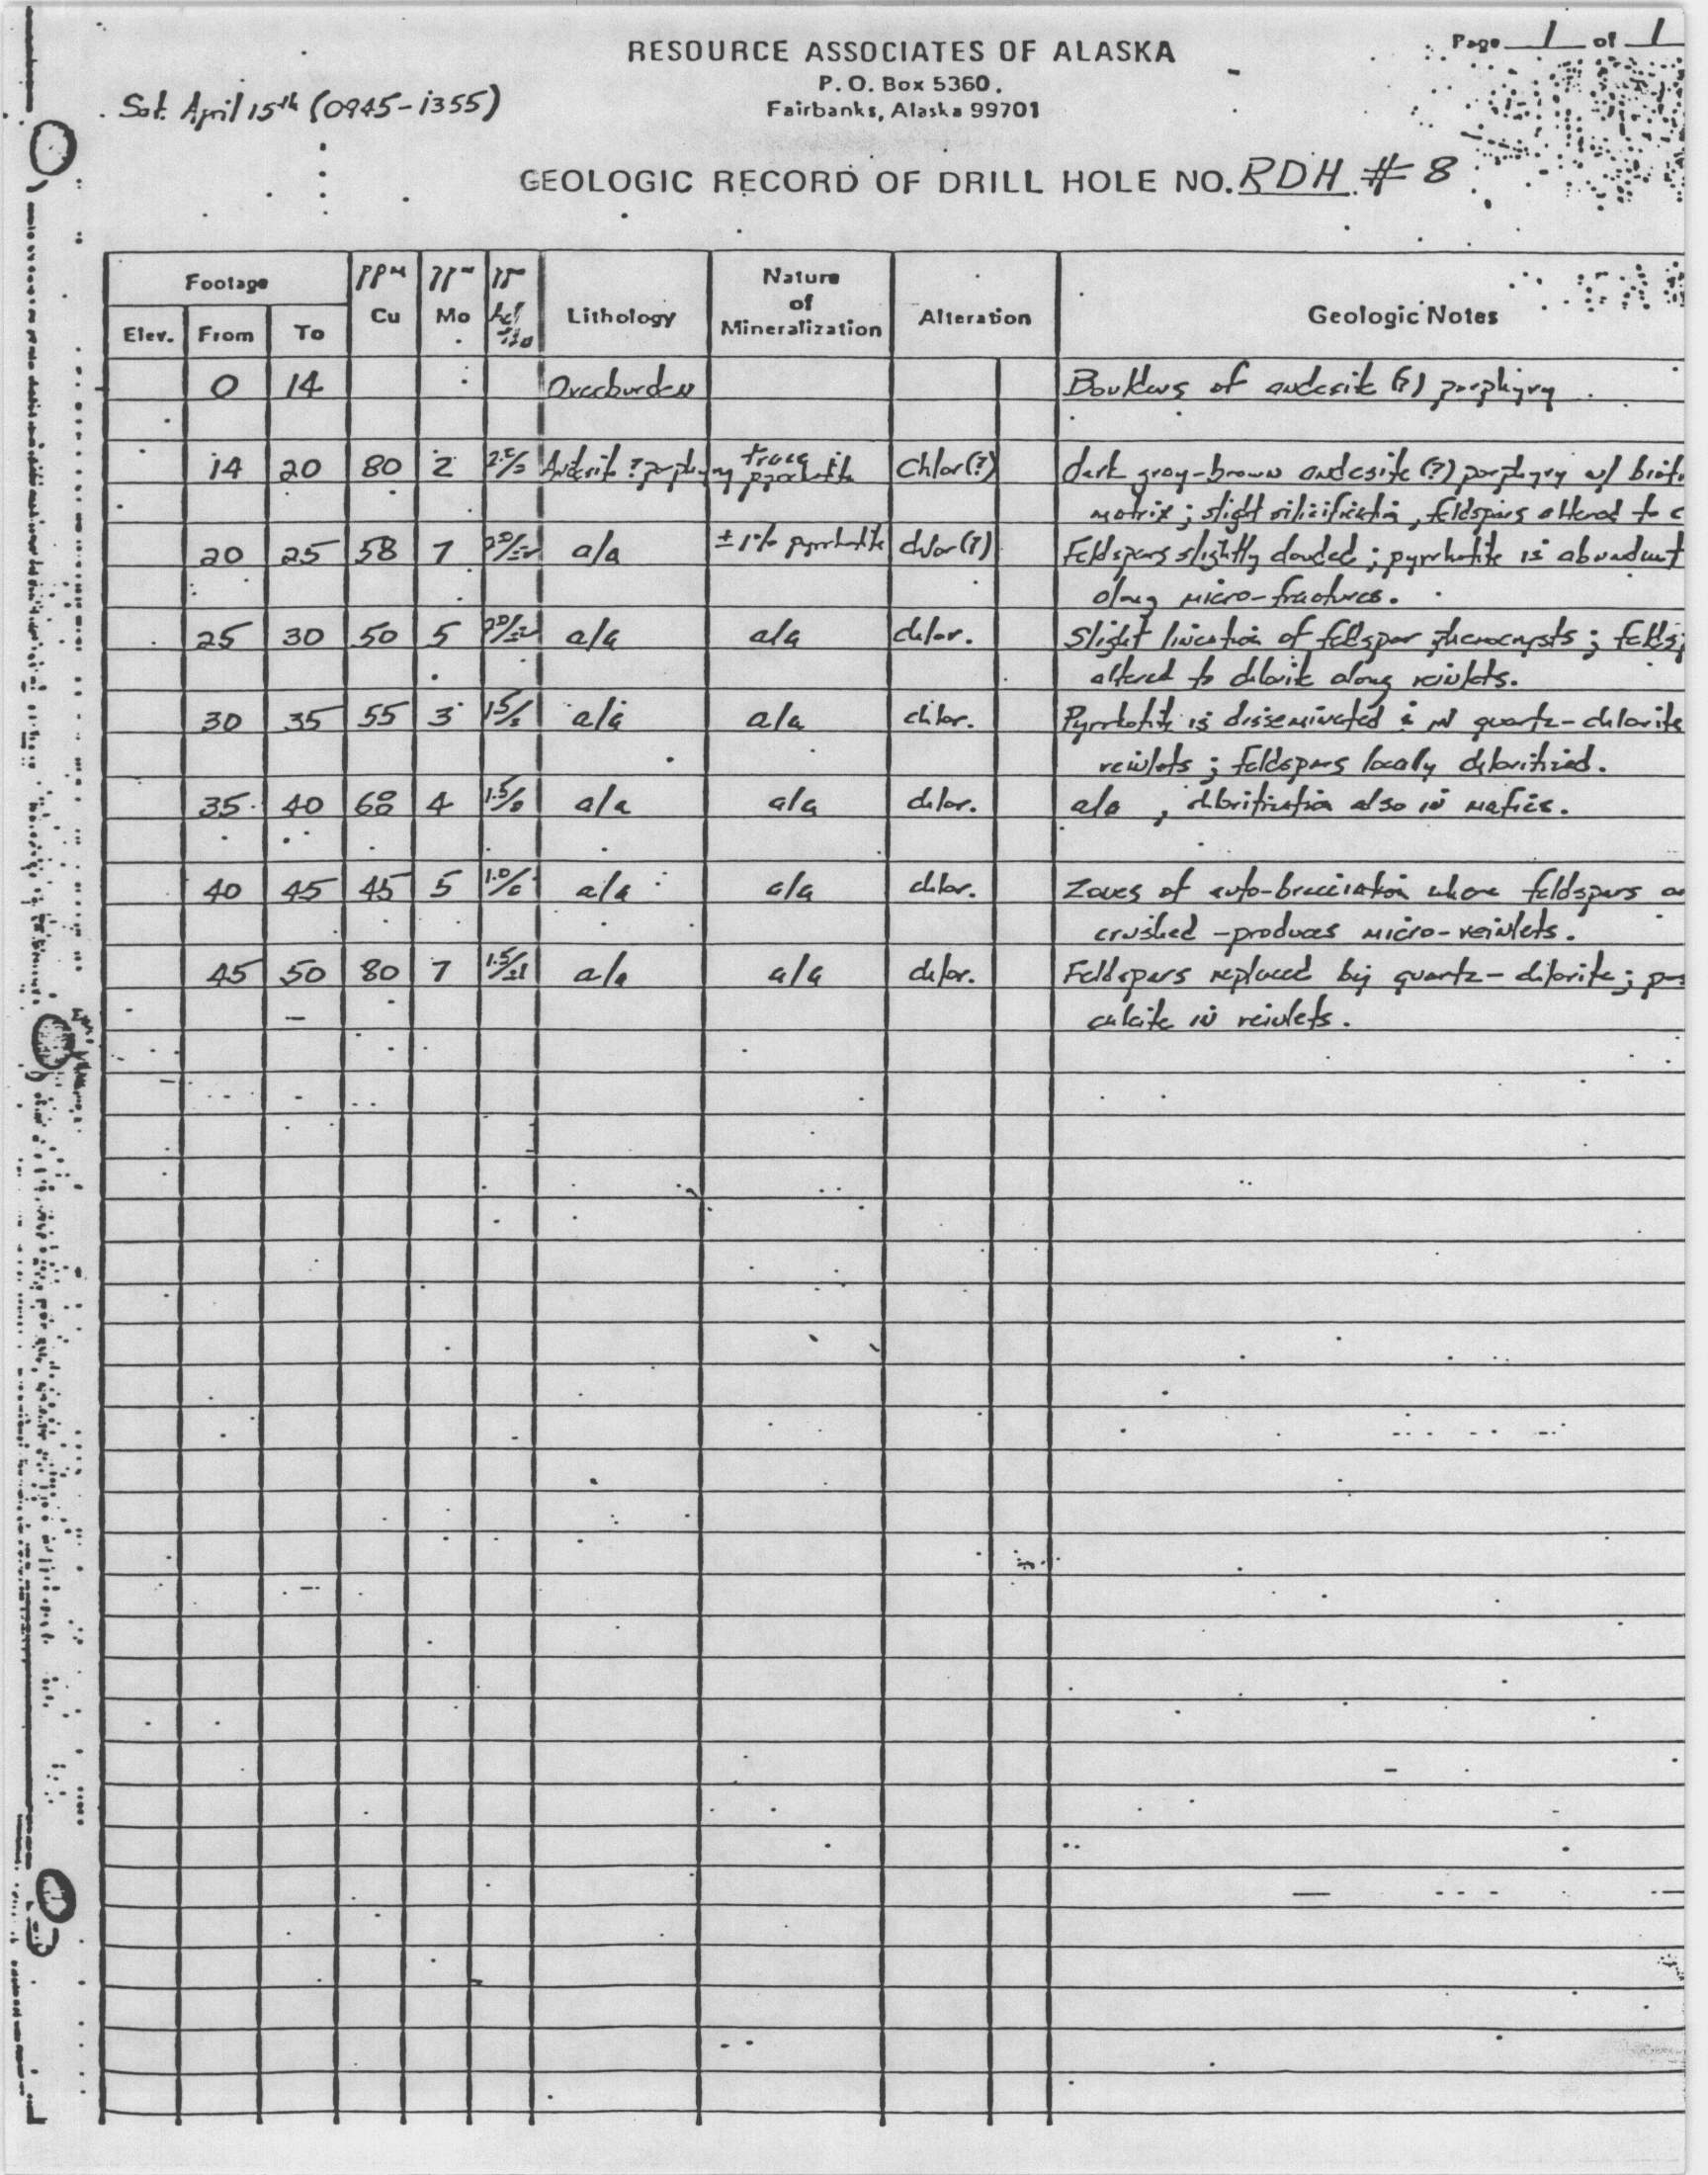 Page 1 of 1
RESOURCE ASSOCIATES OF ALASKA
P. O. Box 5360.
Fairbanks, Alaska 99701
Sat. April 15th (0945-1355)
GEOLOGIC RECORD OF DRILL HOLE NO. RDH #8
Footage ppm ppm ppm Nature
of
Elev. From To Cu Mo Lithology Mineralization Alteration Geologic Notes
0 14 Overburden Boulders of andesite (?) porphyry
14 20 80 2 Andesite ? porphyry trace pyrrhotite Chlor(?) dark gray-brown andesite (?) porphyry w/
matrix; slight silicification, feldspars altered to
20 25 58 7 a/a ± 1% pyrrhotite chlor(?) Feldspars slightly clouded; pyrrhotite is abundant
along micro-fractures.
25 30 50 5 a/a a/a chlor. Slight lineation of feldspar phenocrysts;
altered to chlorite along veinlets.
30 35 55 3 1.5/ a/a a/a chlor. Pyrrhotite is disseminated & in quartz-chlorite
veinlets; feldspars locally chloritized.
35 40 4 1.5/ a/a a/a chlor. a/a, chloritization also in mafics.
40 45 45 5 1.0/ a/a a/a chlor. Zones of auto-brecciation where feldspars
crushed - produces micro-veinlets.
45 50 80 7 1.5/ a/a a/a chlor. Feldspars replaced by quartz-chlorite;
calcite in veinlets.